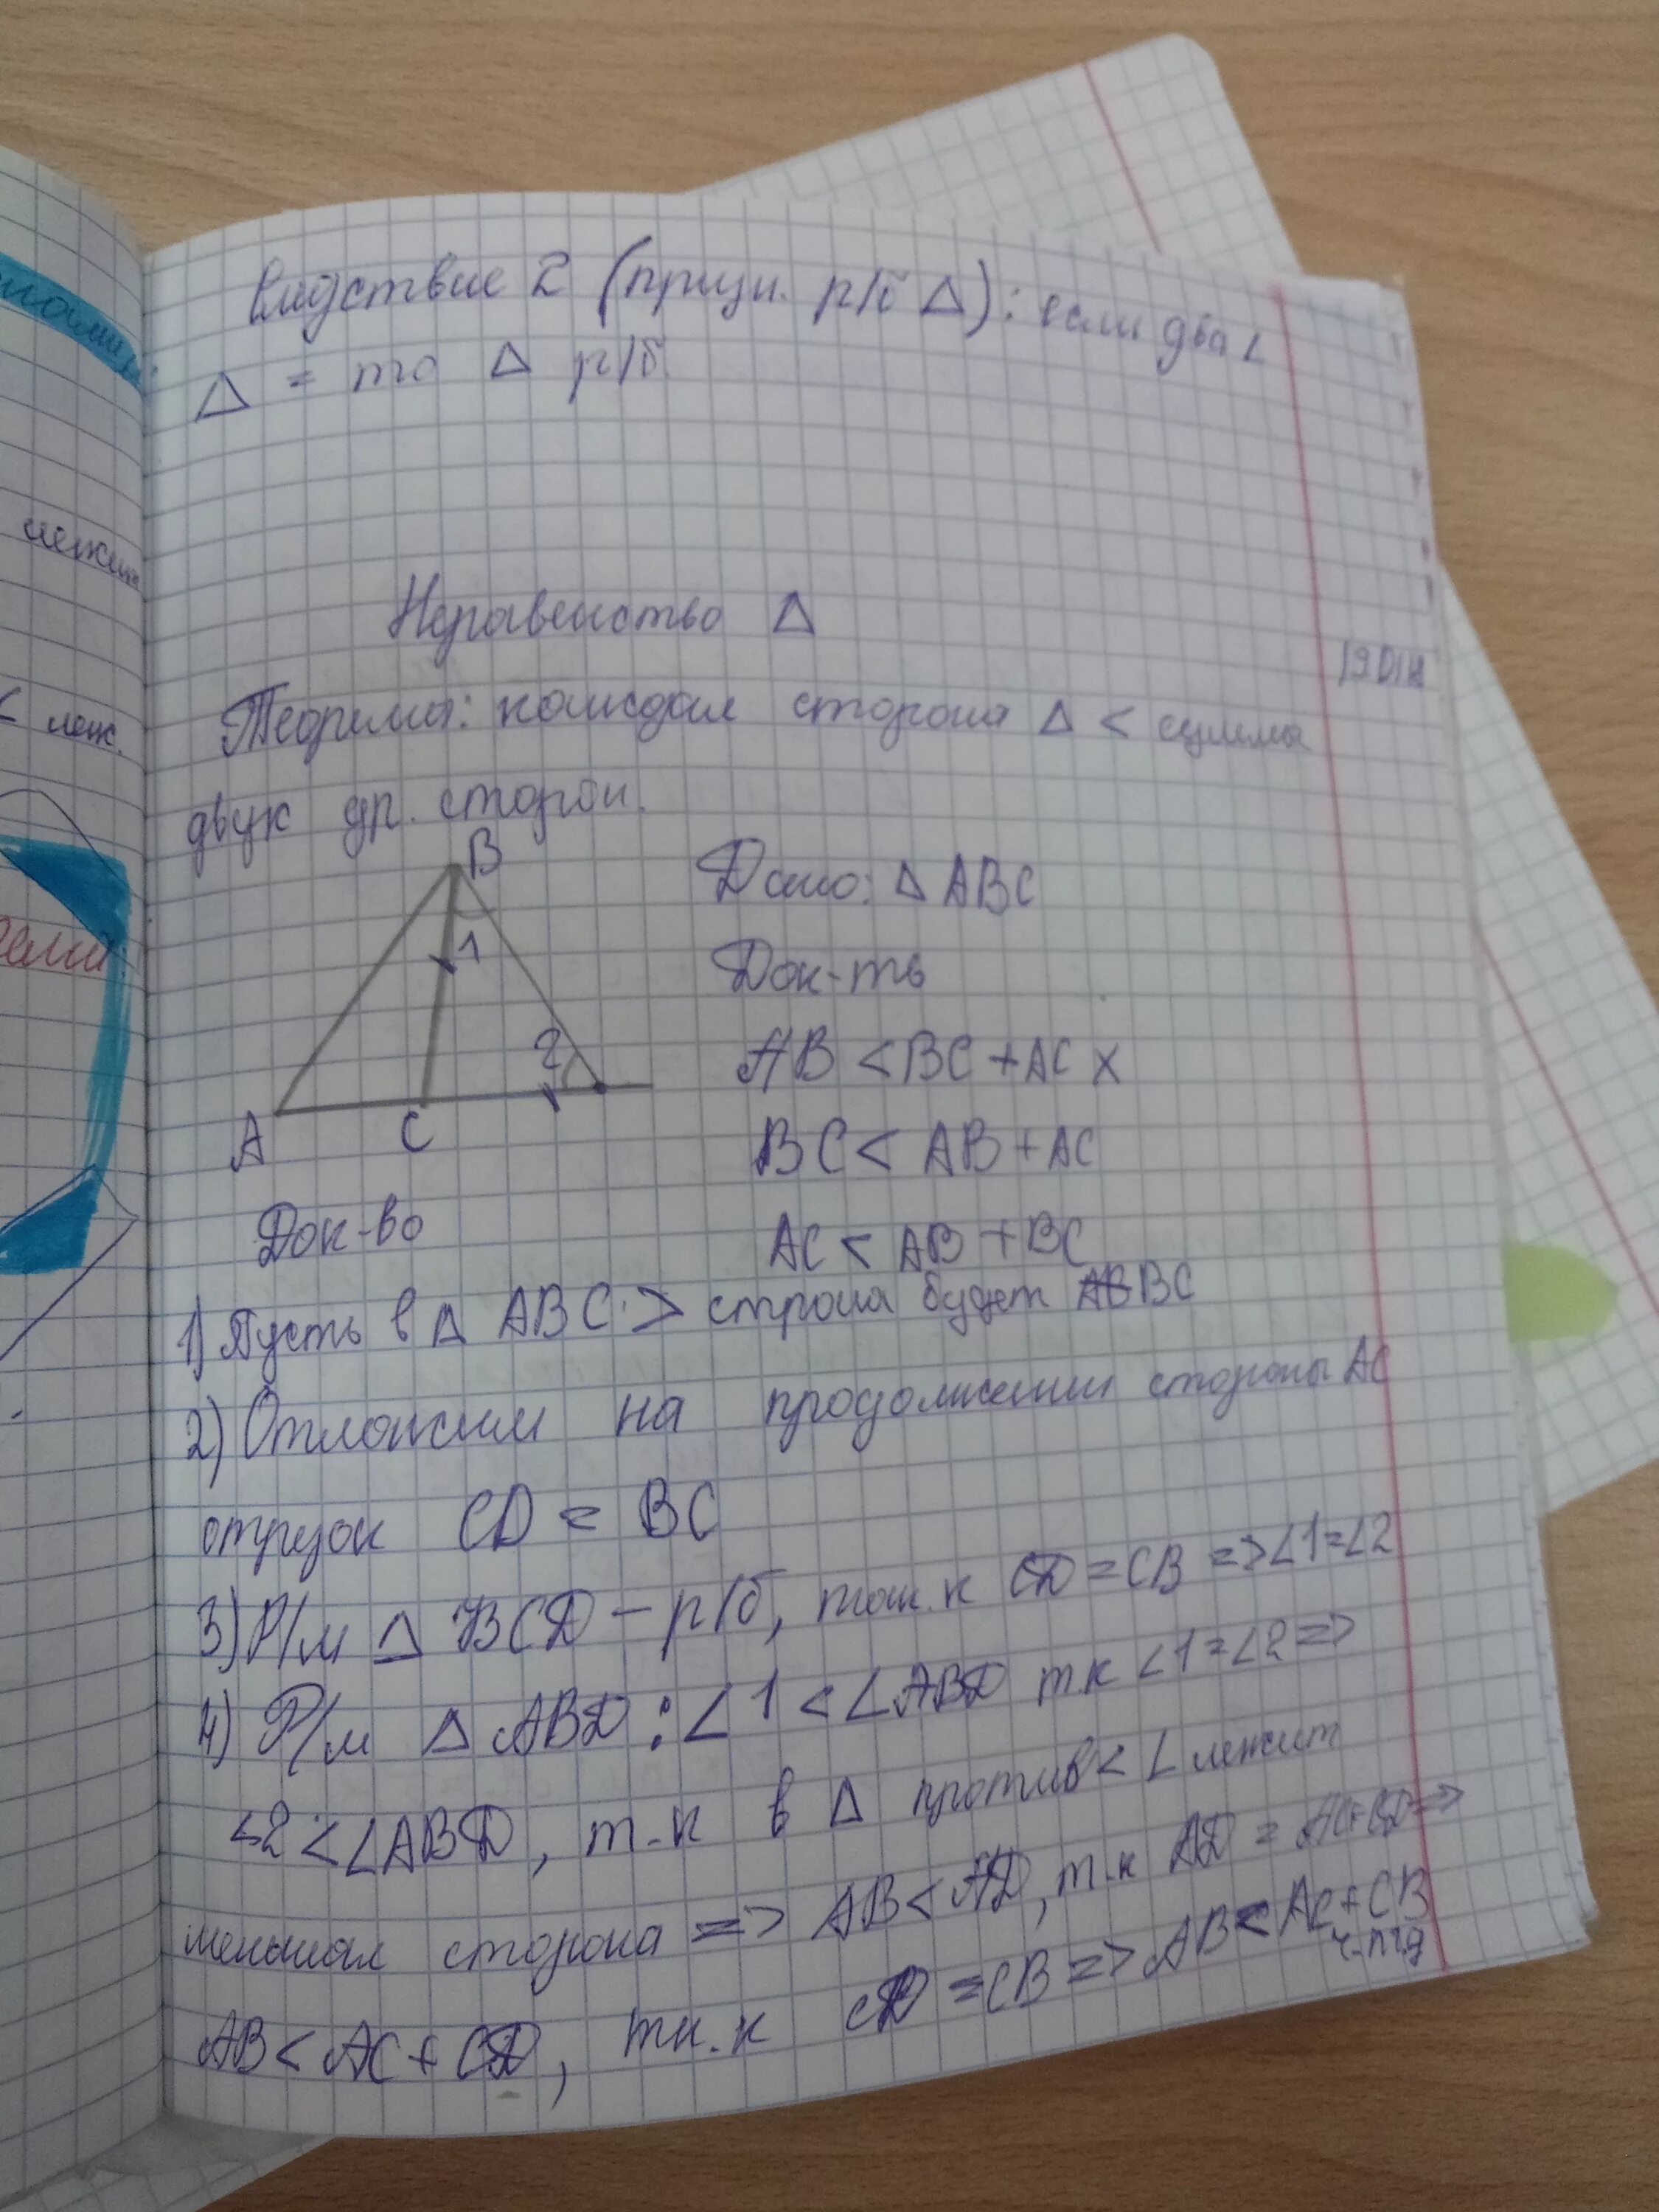 Следствие 2 (призн. р/б Δ): если два ∠
Δ = то Δ р/б
лежит
Неравенство Δ
Теорема: каждая сторона Δ < сумма
∠ леж.
двух др. сторон.
B
Дано: Δ ABC
1
Док-ть
2
AB < BC + AC x
A C
BC < AB + AC
Док-во
AC < AB + BC
1) Пусть в Δ ABC > строна будет BC
2) Отложим на продолжении стороны AC
отрезок CD = BC
3) Р/м Δ BCD – р/б, так.к CD = CB => ∠1=∠2
4) Р/м Δ ABD : ∠1 < ∠ABD т.к ∠1=∠2 =>
∠2 < ∠ABD, т-к в Δ против < ∠ лежит
меньшая сторона => AB < AD, т-к AD = AC+CD =>
AB < AC + CD, тк.к CD = CB => AB < AC + CB
ч-птд